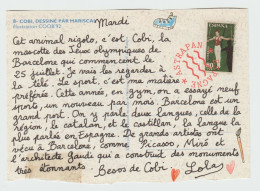 9. COBI, DESSINÉ PAR MARISCAL
Illustration COOB'92
Mardi
Cet animal rigolo, c'est Cobi, la
mascotte des Jeux olympiques de
Barcelone qui commencent le
25 juillet. Je vais les regarder à
la télé. Le sport, c'est ma matière
préférée. Cette année, en gym, on a essayé neuf
sports, un nouveau par mois. Barcelone est un
grand port. On y parle deux langues, celle de la
région, le catalan, et le castillan, la langue la
plus parlée en Espagne. De grands artistes ont
vécu à Barcelone, comme Picasso, Miró et
l'architecte Gaudi qui a construit des monuments
très étonnants. Besos de Cobi. Lola
ASTRAPAN
ESPAÑA